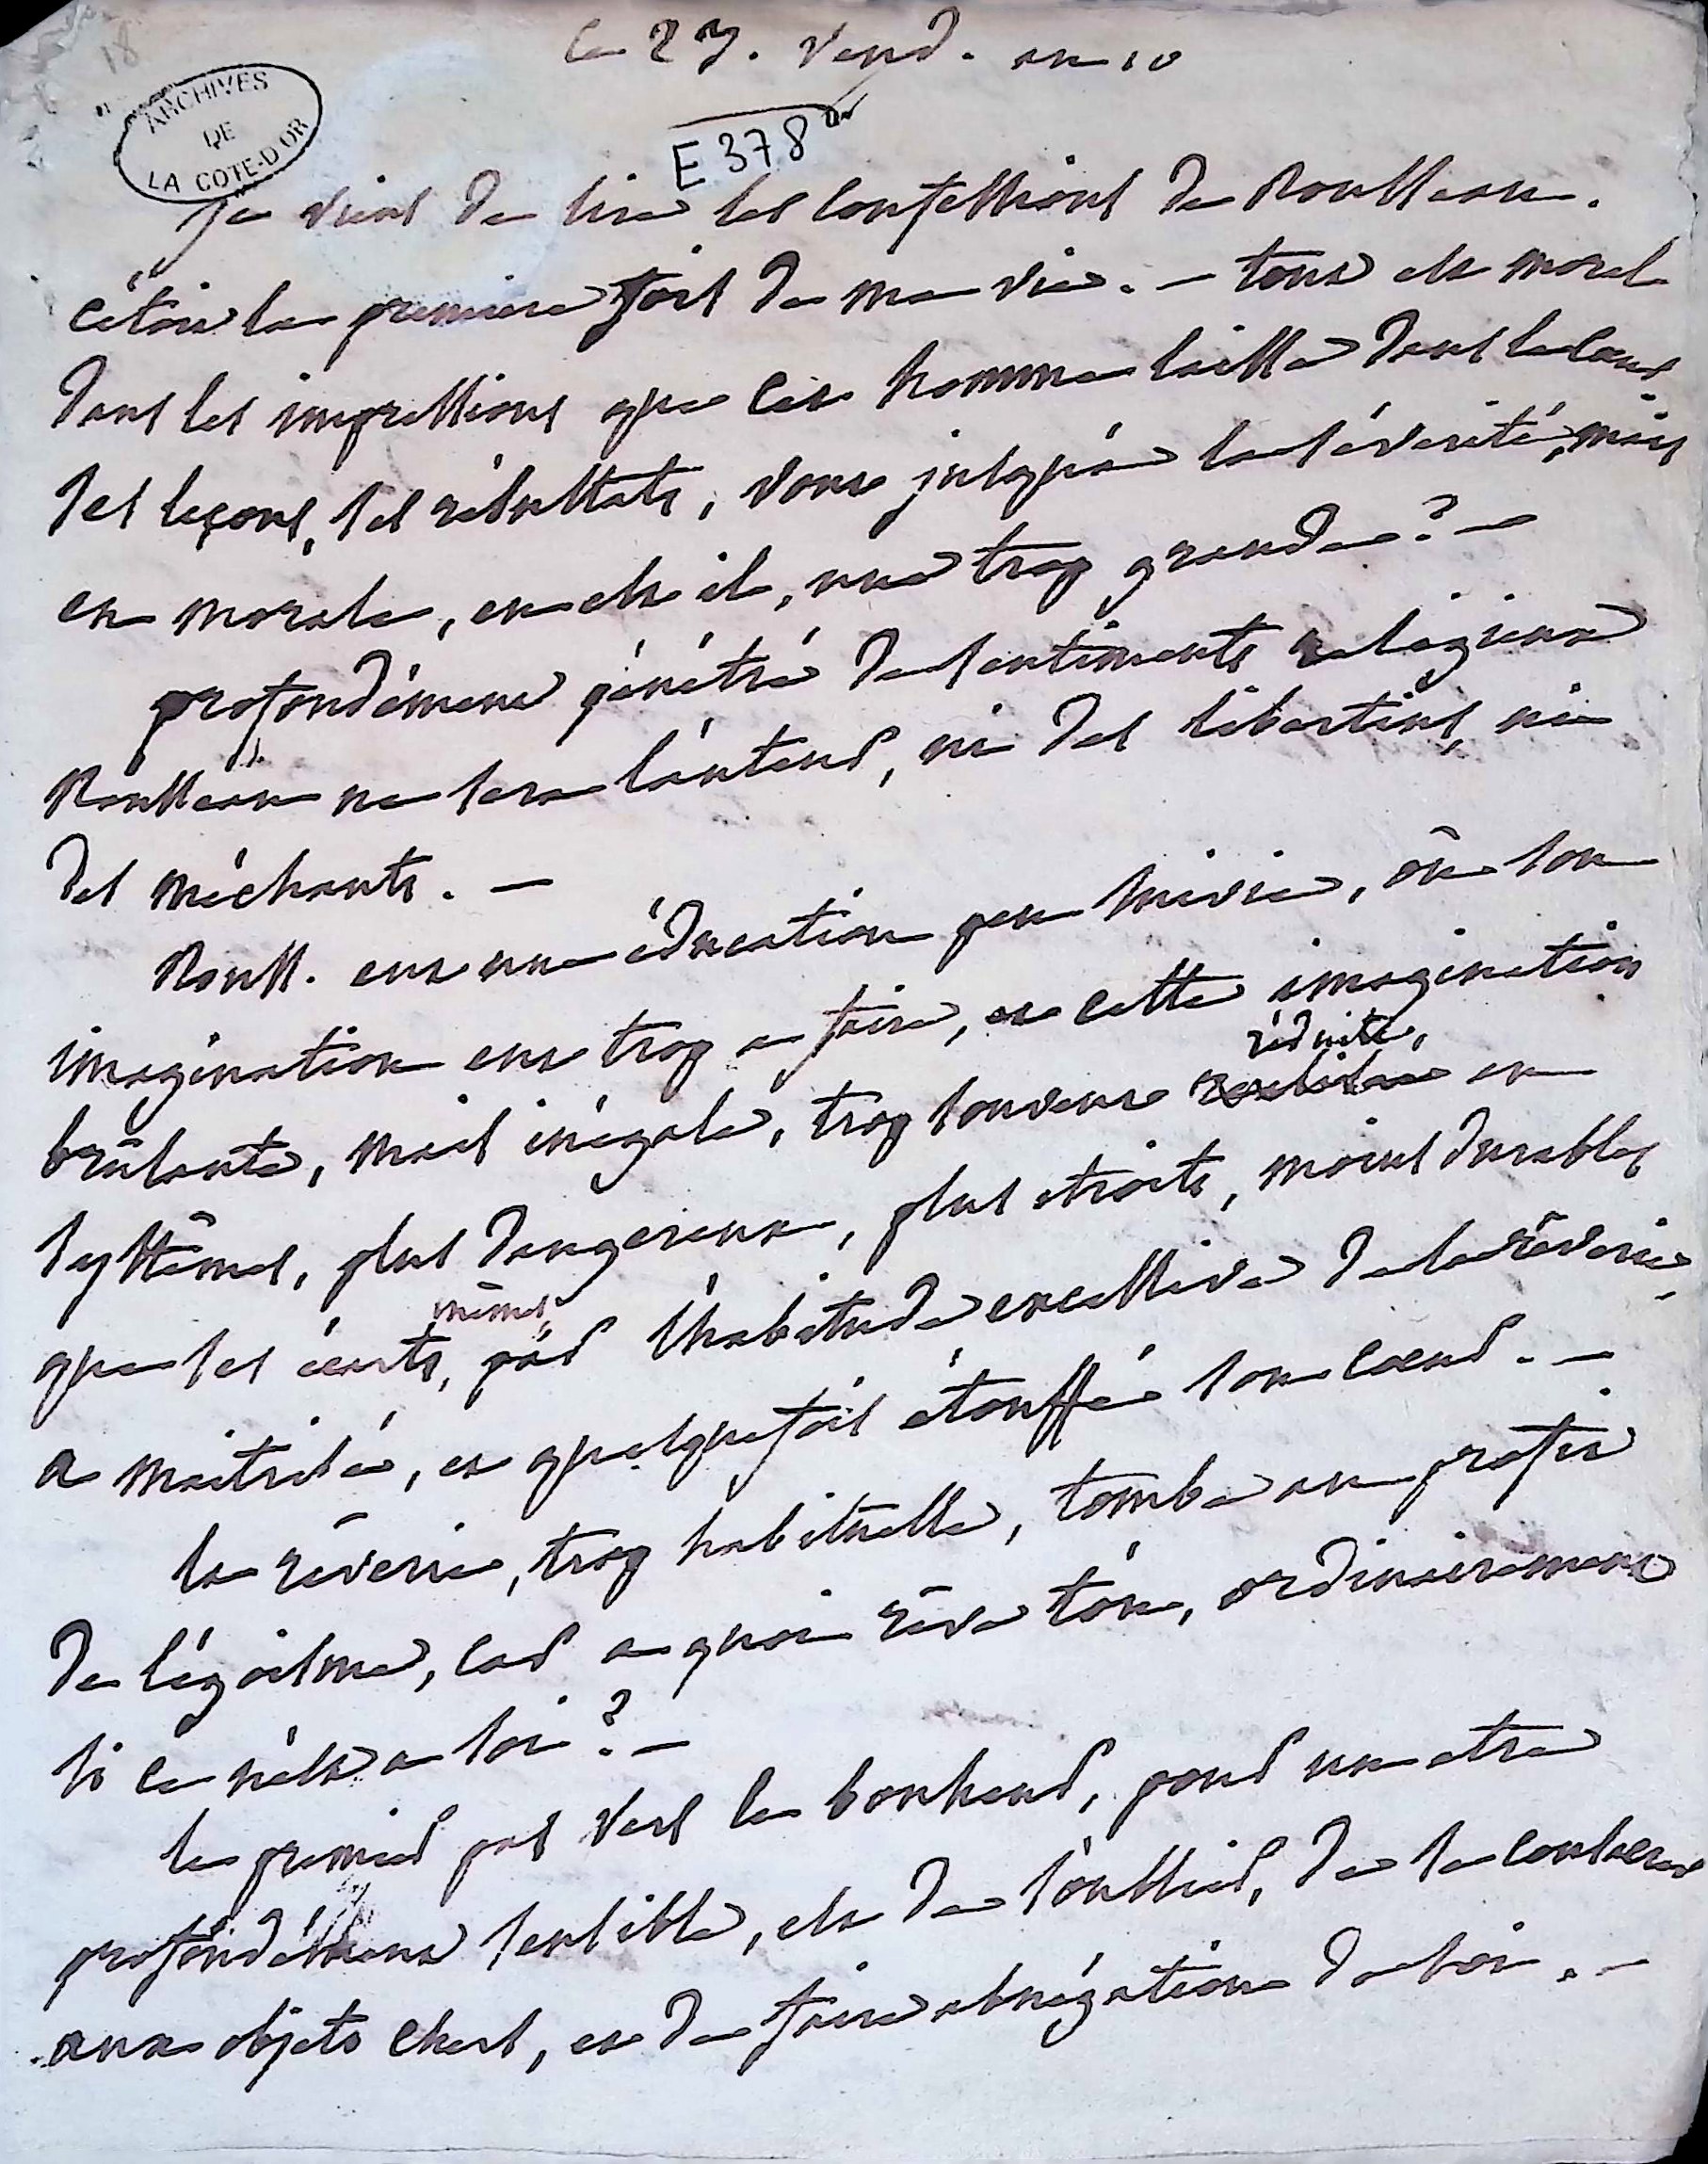 le 27. vend. an 10
ARCHIVES
DE
LA COTE-D'OR
E 378
je viens de lire les confessions de Rousseau.
c'étoit la premiere fois de ma vie. — tout est moral
dans les impressions que cet homme laisse dans le coeur
ses leçons, ses résultats, vont jusqu'à la sévérité, mais
en morale, en est il, une trop grande ? —
profondément pénétré de sentiments religieux
Rousseau ne sera l'auteur, ni des libertins, ni
des méchants. —
Rouss. eut une éducation peu suivie, où son
imagination eut trop a faire, et cette imagination
réduite,
brûlante, mais inégale, trop souvent en
systêmes, plus dangereux, plus etroits, moins durables
mêmes,
que ses écrits, par l'habitude excessive de la rêverie,
a maitrisé, et quelquefois étouffé son coeur. —
la rêverie, trop habituelle, tombe au profit
de l'égoisme, car a quoi rêve t'on, ordinairement
si ce n'est a soi ? —
le premier pas vers le bonheur, pour un etre
profondément sensible, est de s'oublier, de se consacrer
aux objets chers, et de faire abnégation de soi. —